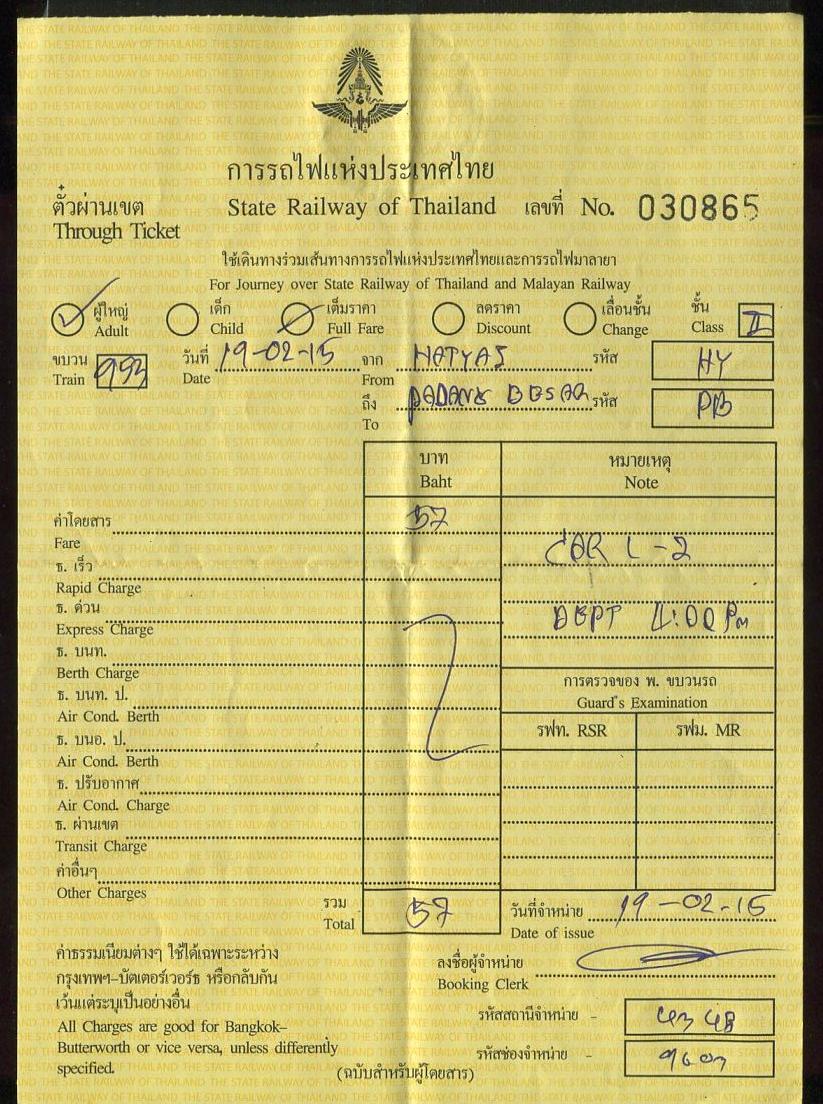 การรถไฟแห่งประเทศไทย
ตั๋วผ่านเขต State Railway of Thailand เลขที่ No. 030865
Through Ticket
ใช้เดินทางร่วมเส้นทางการรถไฟแห่งประเทศไทยและการรถไฟมาลายา
For Journey over State Railway of Thailand and Malayan Railway
ผู้ใหญ่ เด็ก เต็มราคา ลดราคา เลื่อนชั้น ชั้น
Adult Child Full Fare Discount Change Class II
ขบวน 993 วันที่ 19-02-15 จาก HATYAI รหัส HY
Train Date From
ถึง PADANG BESAR รหัส PB
To
บาท หมายเหตุ
Baht Note
ค่าโดยสาร 57
Fare CAR L-2
ธ. เร็ว
Rapid Charge
ธ. ด่วน DEPT
Express Charge
ธ. บนท.
Berth Charge การตรวจของ พ. ขบวนรถ
ธ. บนท. ป. Guard's Examination
Air Cond. Berth รฟท. RSR รฟม. MR
ธ. บนอ. ป.
Air Cond. Berth
ธ. ปรับอากาศ
Air Cond. Charge
ธ. ผ่านเขต
Transit Charge
ค่าอื่นๆ
Other Charges
รวม 57 วันที่จำหน่าย 19-02-15
Total Date of issue
ค่าธรรมเนียมต่างๆ ใช้ได้เฉพาะระหว่าง ลงชื่อผู้จำหน่าย
กรุงเทพฯ-บัตเตอร์เวอร์ธ หรือกลับกัน Booking Clerk
เว้นแต่ระบุเป็นอย่างอื่น รหัสสถานีจำหน่าย -
All Charges are good for Bangkok–
Butterworth or vice versa, unless differently รหัสช่องจำหน่าย -
specified. (ฉบับสำหรับผู้โดยสาร)